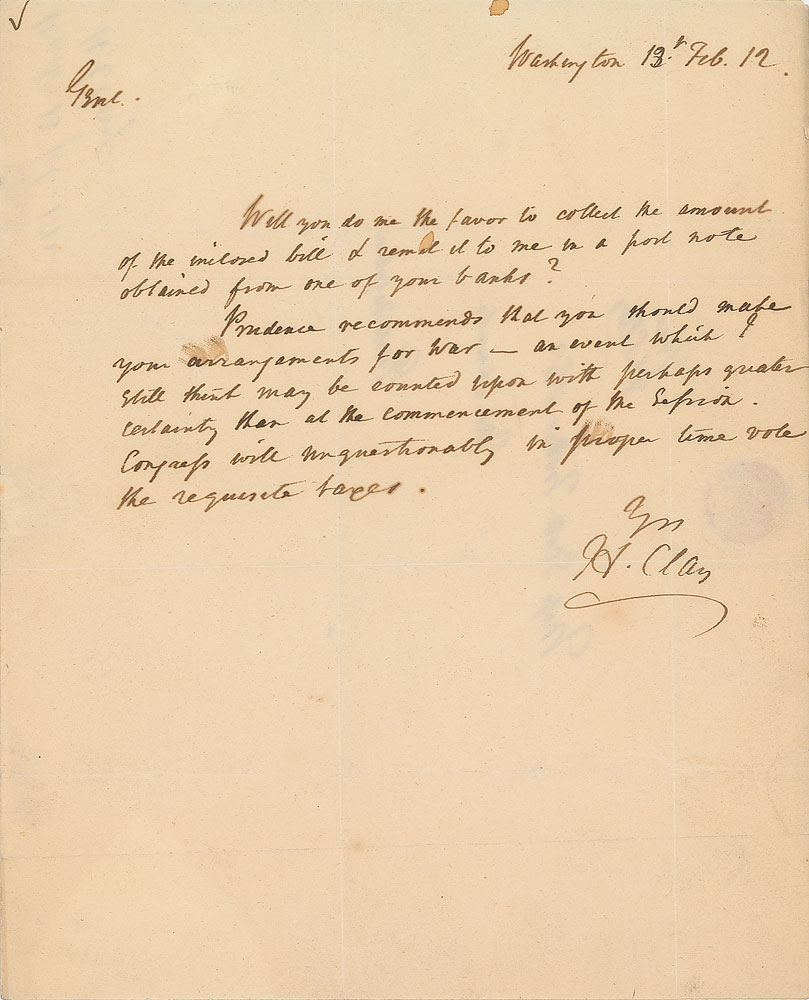 Washington 13r Feb. 12.
Gent.
Will you do me the favor to collect the amount
of the inclosed bill & remit it to me in a post note
obtained from one of your banks?
Prudence recommends that you should make
your arrangements for War — an event which I
still think may be counted upon with perhaps greater
certainty than at the commencement of the Session.
Congress will unquestionably in proper time vote
the requisite taxes.
Yrs
H. Clay